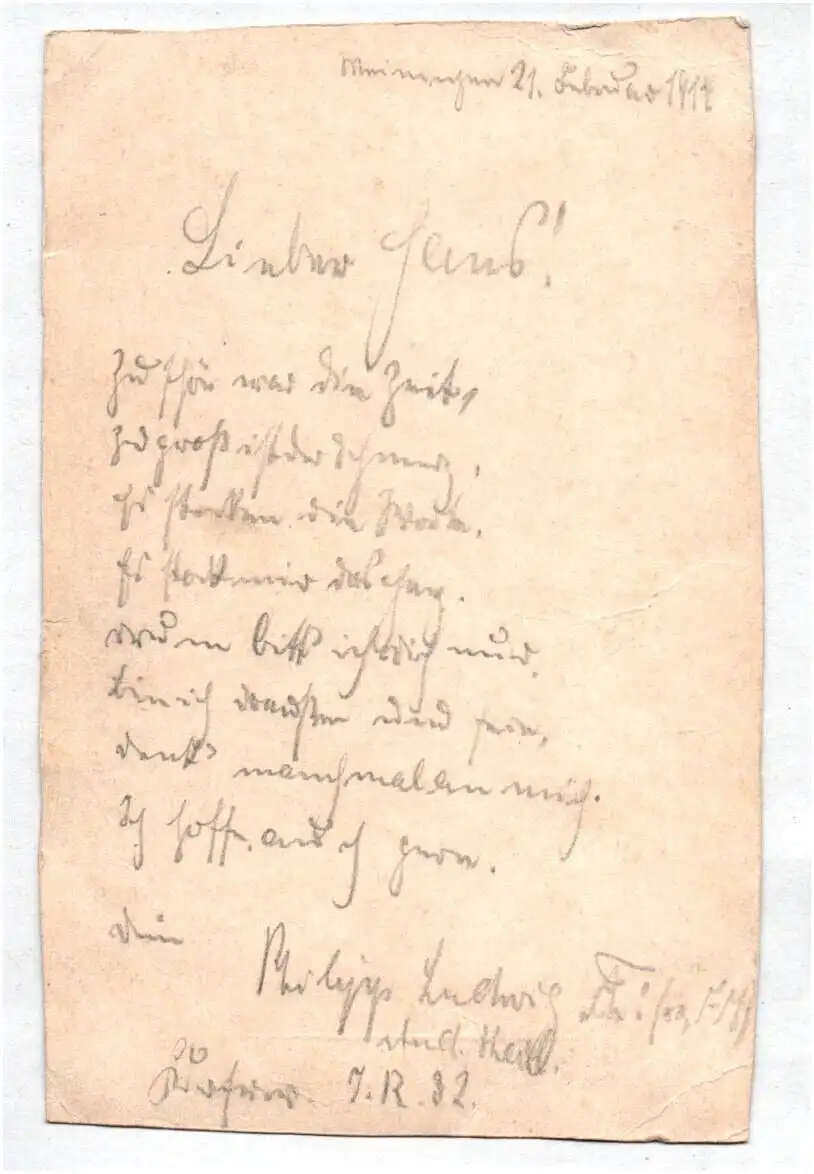 Meiningen 21. Februar 1917
Lieber Hans!
Zu schön war die Zeit,
Zu groß ist der Schmerz,
Es stocken die Worte,
Es stockt mir das Herz.
Drum bitt ich dich nur,
Bin ich draußen und fern,
denk manchmal an mich.
Ich hoffe, auch gern.
Dein
Philipp Ludwig
stud.
J.R. 32.